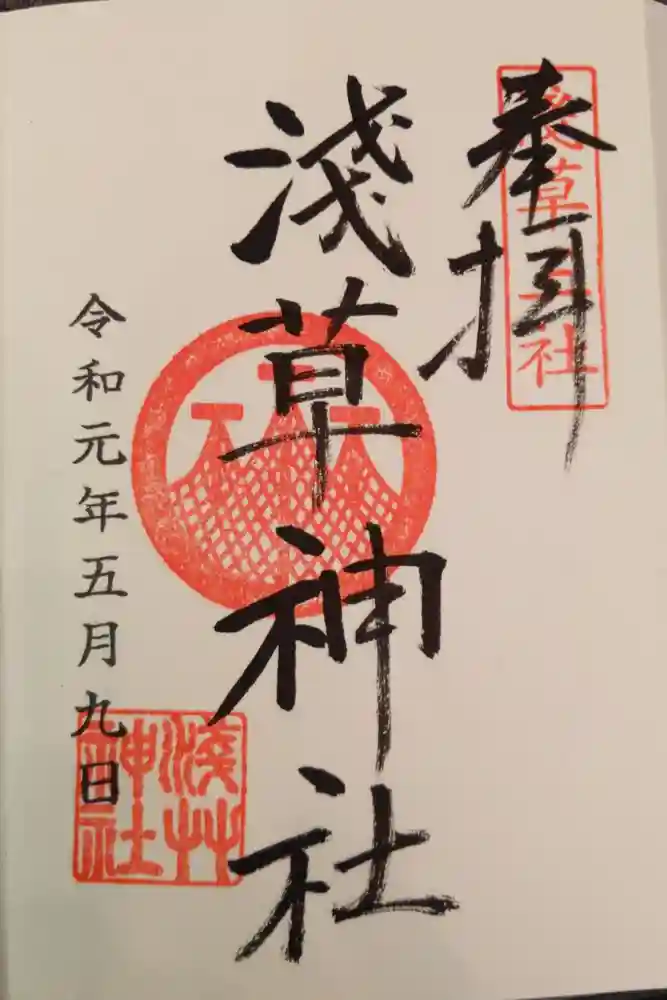 奉拝
淺草三社
淺草神社
令和元年五月九日
淺艸
神社